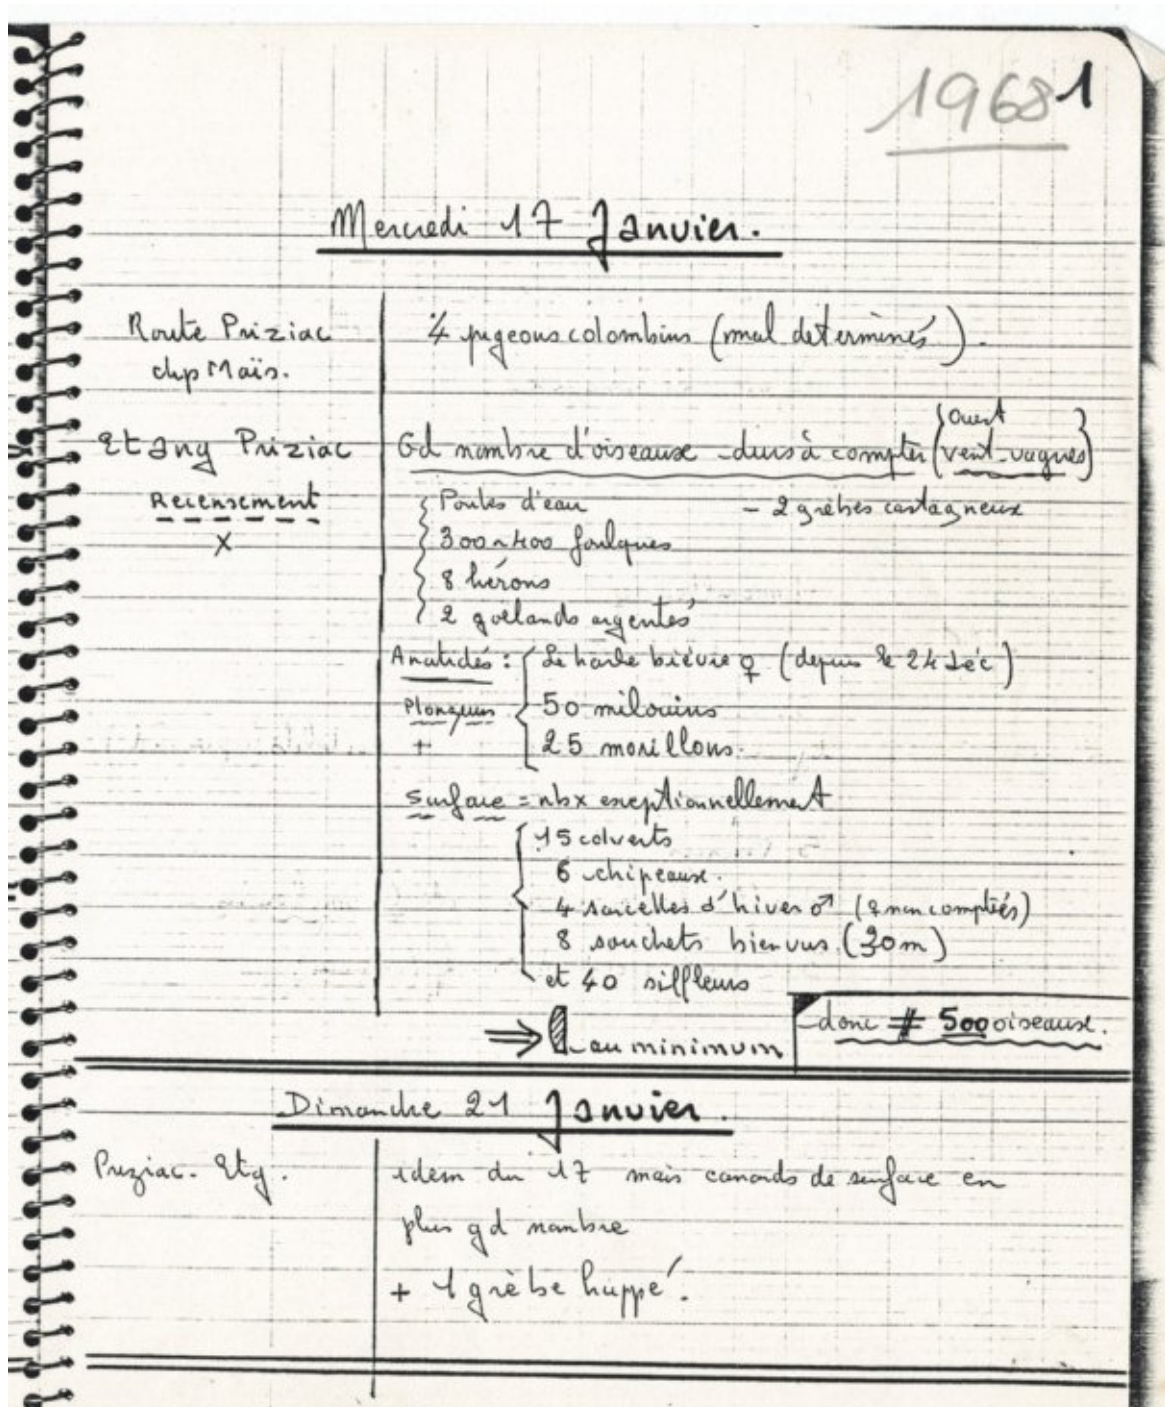 1968 1
Mercredi 17 Janvier.
Route Priziac
chp Maïs.
4 pigeons colombins (mal determinés).
Etang Priziac
Recensement
X
Gd nombre d'oiseaux - durs à compter (vent ouest - vagues)
Poules d'eau - 2 grèbes castagneux
300 ~ 400 foulques
8 hérons
2 goëlands argentés
Anatidés : Le harle bièvre ♀ (depuis le 24 Déc)
Plongeurs 50 milouins
+ 25 morillons.
Surface = nbx exceptionnellement
15 colverts
6 chipeaux.
4 sarcelles d'hiver ♂ (♀ non comptées)
8 souchets bien vus (30 m)
et 40 siffleurs
⇒ au minimum
donc # 500 oiseaux.
Dimanche 21 Janvier.
Priziac. Etg.
idem du 17 mais canards de surface en
plus gd nombre
+ 1 grèbe huppé.